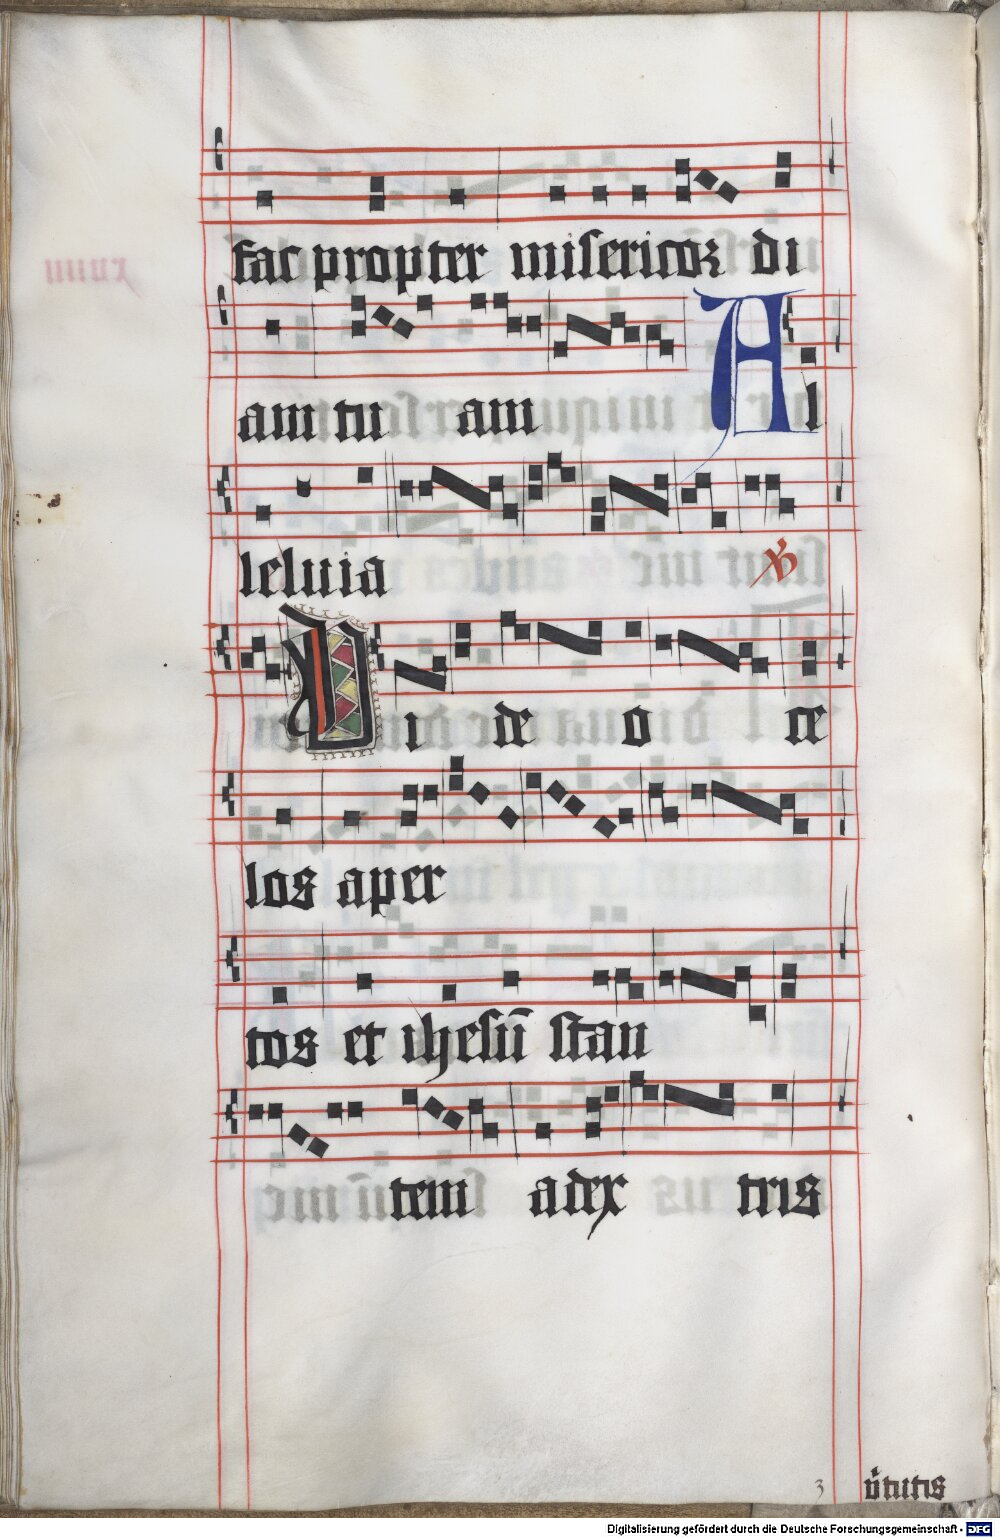 fac propter misericor di
am tu am Al
leluia ℣
Vi de o ce
los aper
tos et ihesū stan
tem adex tris
3 v̉tutis
Digitalisierung gefördert durch die Deutsche Forschungsgemeinschaft - DFG